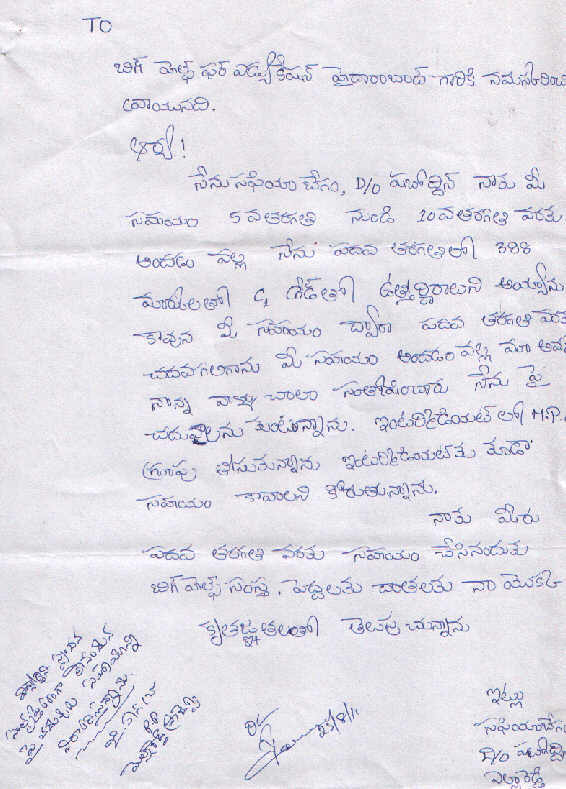 TO
బిగ్ హెల్ప్ ఫర్ ఎడ్యుకేషన్ హైదరాబాద్ గారికి నమస్కరించి
వ్రాయునది.
ఆర్య!
నేను సఫియా బేగం, D/o నాకు మీ
సహాయం 5 వ తరగతి నుండి 10 వ తరగతి వరకు
అందడం వల్ల నేను పదవ తరగతిలో 388
మార్కులతో గ్రేడ్‌తో ఉత్తీర్ణురాలుని అయ్యాను
కావున మీ సహాయం ద్వారా పదవ తరగతి వరకు
చదవగలిగాను మీ సహాయం అందడం వల్ల మా అమ్మ
నాన్న వాళ్ళు చాలా సంతోషించారు నేను పై
చదువులను కుంటున్నాను. ఇంటర్మీడియట్ లో M.P.
గ్రూపు తీసుకున్నాను ఇంటర్మీడియట్‌కు కూడా
సహాయం కావాలని కోరుతున్నాను.
నాకు మీరు
పదవ తరగతి వరకు సహాయం చేసినందుకు
బిగ్ హెల్ప్ సంస్థ, పెద్దలకు దాతలకు నా యొక్క
కృతజ్ఞతలతో తెలుపు చున్నాను
ఇట్లు
సఫియాబేగం
D/o